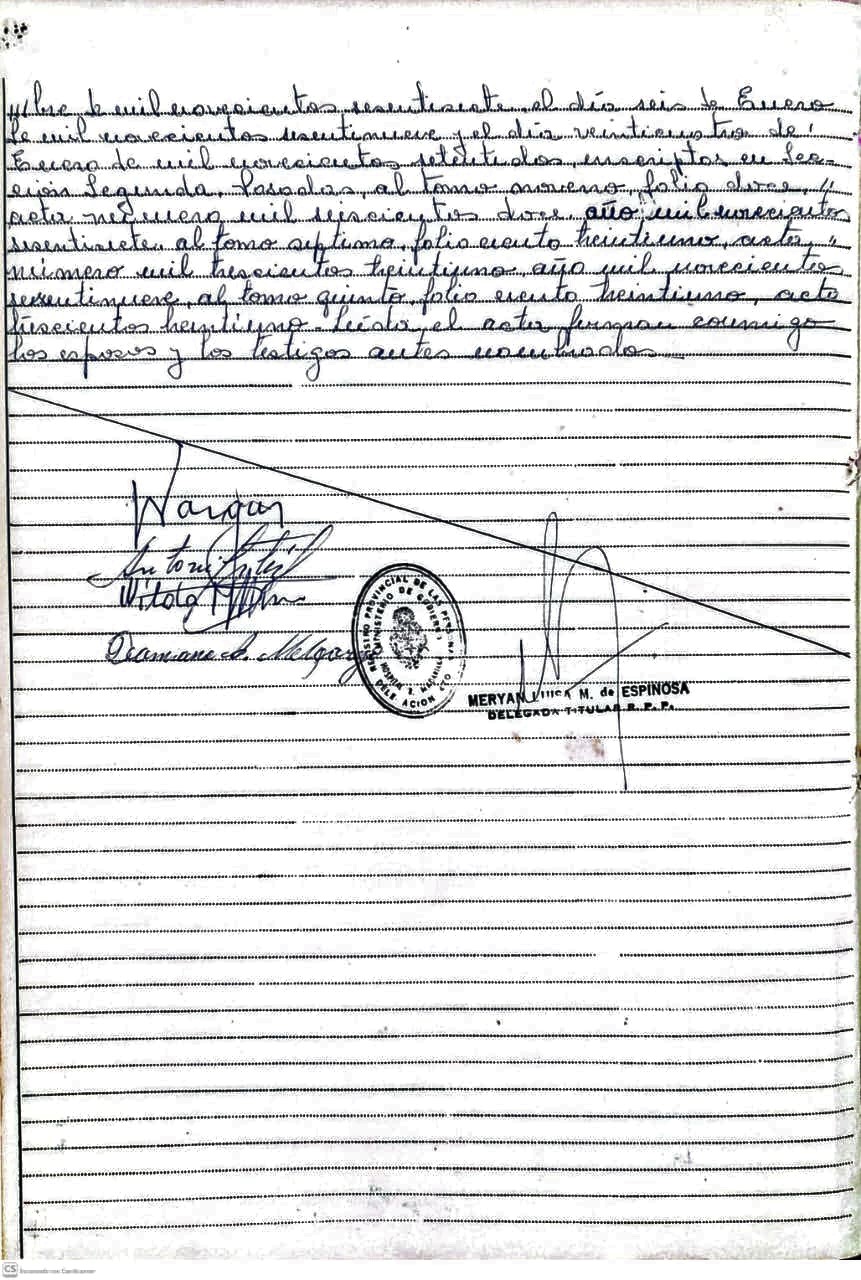 ///bre de mil novecientos sesentisiete, el día seis de Enero
de mil novecientos sesentinueve y el día veinticuatro de
Enero de mil novecientos setentidos, inscriptos en Sec-
ción Segunda, Posadas, al tomo noveno, folio doce, //
acta número mil seiscientos doce, año mil novecientos
sesentisiete, al tomo septimo, folio ciento treintiuno, acta //
número mil trescientos treintiuno, año mil novecientos
sesentinueve, al tomo quinto, folio ciento treintiuno, acta
trescientos treintiuno. Leída el acta firman conmigo
los esposos y los testigos antes nombrados.
Antoni
Witold
Melgar
REGISTRO PROVINCIAL DE LAS PERSONAS
MINISTERIO DE GOBIERNO
HOSPITAL R. MADARIAGA
DELEGACION CTO
MERYAN LUISA M. de ESPINOSA
DELEGADA TITULAR R. P. P.
CS Escaneado con CamScanner